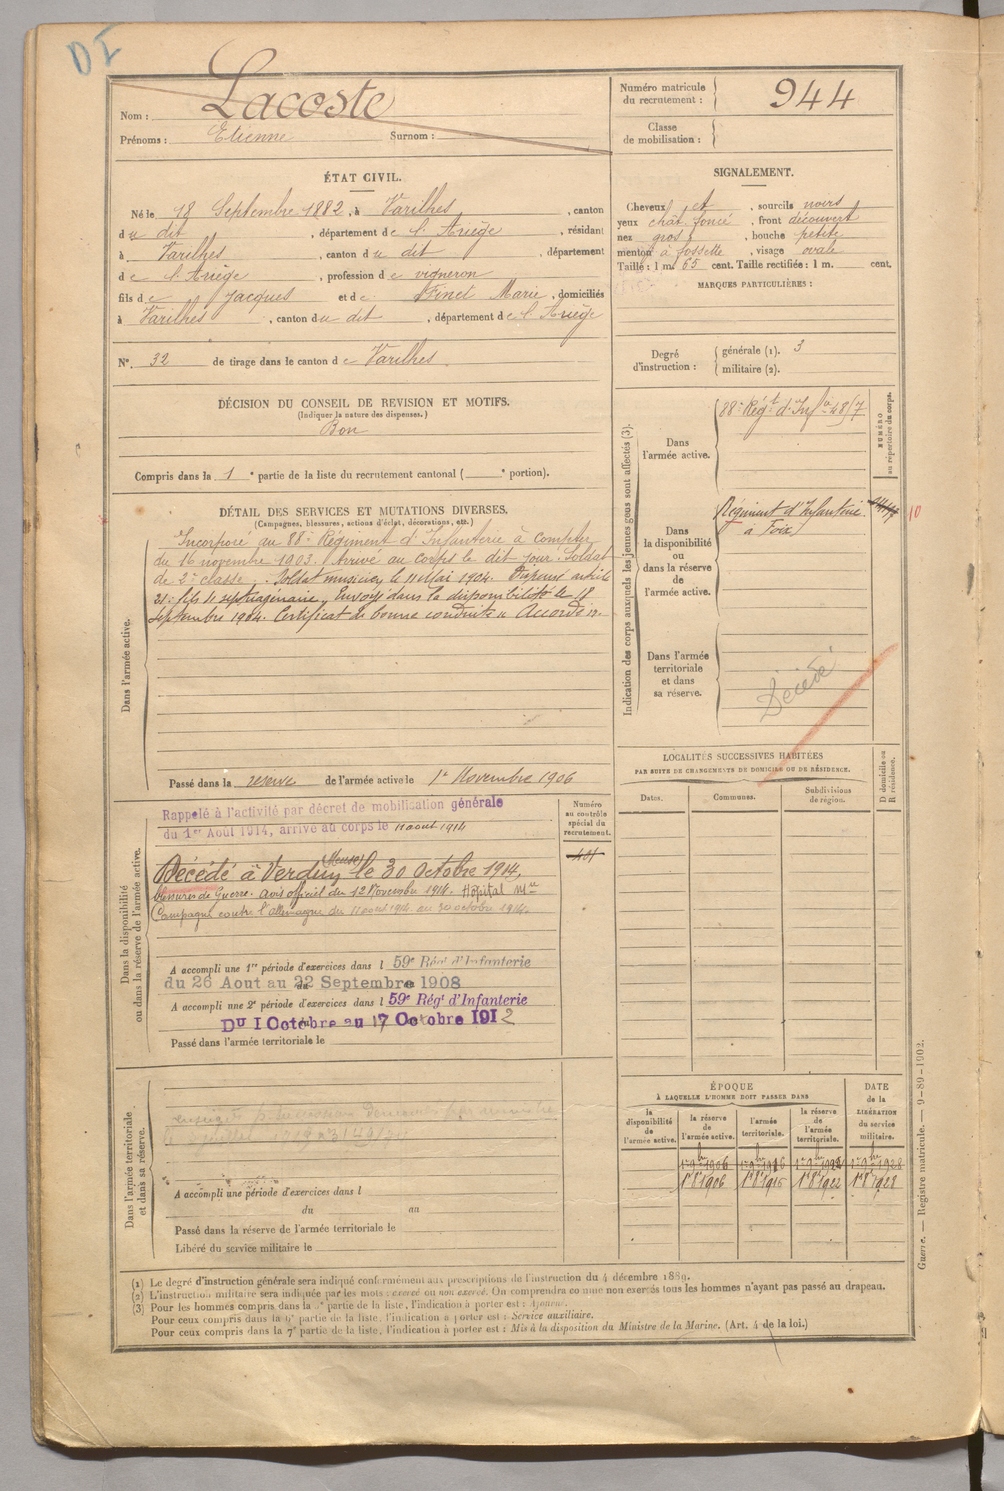 DI
Nom : Lacoste
Prénoms : Etienne Surnom :
Numéro matricule du recrutement : 944
Classe de mobilisation :
ÉTAT CIVIL.
Né le 18 Septembre 1882, à Varilhes, canton
du dit, département de l'Ariège, résidant
à Varilhes, canton du dit, département
de l'Ariège, profession de vigneron
fils de Jacques et de Finel Marie, domiciliés
à Varilhes, canton du dit, département de l'Ariège
N° 32 de tirage dans le canton de Varilhes.
DÉCISION DU CONSEIL DE REVISION ET MOTIFS.
(Indiquer la nature des dispenses.)
Bon
Compris dans la 1e partie de la liste du recrutement cantonal ( e portion).
SIGNALEMENT.
Cheveux et, sourcils noirs
yeux chât. foncé, front découvert
nez gros, bouche petite
menton à fossette, visage ovale
Taille : 1 m. 65 cent. Taille rectifiée : 1 m. cent.
MARQUES PARTICULIÈRES :
Degré d'instruction : générale (1). 3
militaire (2).
DÉTAIL DES SERVICES ET MUTATIONS DIVERSES.
(Campagnes, blessures, actions d'éclat, décorations, etc.)
Dans l'armée active.
Incorporé au 88e Régiment d'Infanterie à compter
du 16 novembre 1903. Arrivé au corps le dit jour. Soldat
de 2e classe. Soldat musicien le 11 Mai 1904. Dispensé article
21: fils de septuagénaire. Envoyé dans la disponibilité le 18
Septembre 1904. Certificat de bonne conduite « Accordé ».
Passé dans la reserve de l'armée active le 1er Novembre 1906
Indication des corps auxquels les jeunes gens sont affectés (3).
NUMÉRO au répertoire du corps.
Dans l'armée active.
88e Régt d'Infie 48/7
Dans la disponibilité ou dans la réserve de l'armée active.
Régiment d'Infanterie
à Foix
10
Dans l'armée territoriale et dans sa réserve.
Décédé
LOCALITÉS SUCCESSIVES HABITÉES
PAR SUITE DE CHANGEMENTS DE DOMICILE OU DE RÉSIDENCE.
Dates. Communes. Subdivisions de région. D domicile ou R résidence.
Dans la disponibilité ou dans la réserve de l'armée active.
Numéro au contrôle spécial du recrutement.
Rappelé à l'activité par décret de mobilisation générale
du 1er Août 1914, arrivé au corps le 11 aout 1914
Décédé à Verdun (Meuse) le 30 Octobre 1914,
blessures de Guerre. avis officiel du 12 Novembre 1914. Hôpital Mre
Campagne contre l'allemagne du 11 aout 1914 au 30 octobre 1914.
A accompli une 1re période d'exercices dans l 59e Régt d'Infanterie
du 26 Aout au 22 Septembre 1908
A accompli une 2e période d'exercices dans l 59e Régt d'Infanterie
Du 1 Octobre au 17 Octobre 1912
Passé dans l'armée territoriale le
Dans l'armée territoriale et dans sa réserve.
A accompli une période d'exercices dans l
du au
Passé dans la réserve de l'armée territoriale le
Libéré du service militaire le
ÉPOQUE
À LAQUELLE L'HOMME DOIT PASSER DANS
DATE de la LIBÉRATION du service militaire.
la disponibilité de l'armée active. la réserve de l'armée active. l'armée territoriale. la réserve de l'armée territoriale.
1er 9bre 1906 1er 9bre 1916 1er 9bre 1922 1er 9bre 1928
1er 8 1906 1er 8 1916 1er 8 1922 1er 8 1928
(1) Le degré d'instruction générale sera indiqué conformément aux prescriptions de l'instruction du 4 décembre 1889.
(2) L'instruction militaire sera indiquée par les mots : exercé ou non exercé. On comprendra comme non exercés tous les hommes n'ayant pas passé au drapeau.
(3) Pour les hommes compris dans la 2e partie de la liste, l'indication à porter est : Ajourné.
Pour ceux compris dans la 6e partie de la liste, l'indication à porter est : Service auxiliaire.
Pour ceux compris dans la 7e partie de la liste, l'indication à porter est : Mis à la disposition du Ministre de la Marine. (Art. 4 de la loi.)
Guerre. — Registre matricule. — 9-89-1902.